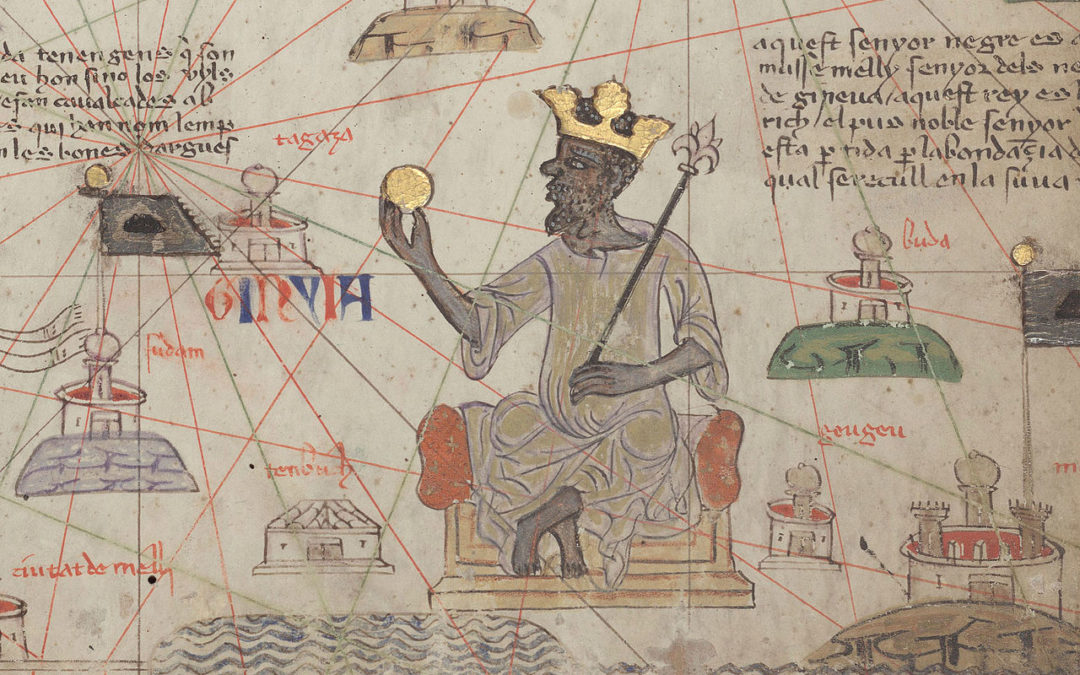 da tenen gens q̃ son
eu hon sino los vyls
efan caualcades ab
es qui han nom lemp
n les bones dargues
aquest senyor negre es
musse melly senyor dels ne
de gineua / aquest rey es
rich / el pus noble senyor
esta p̃tida p̃ labondaçia d
qual se recull en la suua
tagaza
buda
GINYIA
sudam
geugeu
tenbuch
ciutat de melly